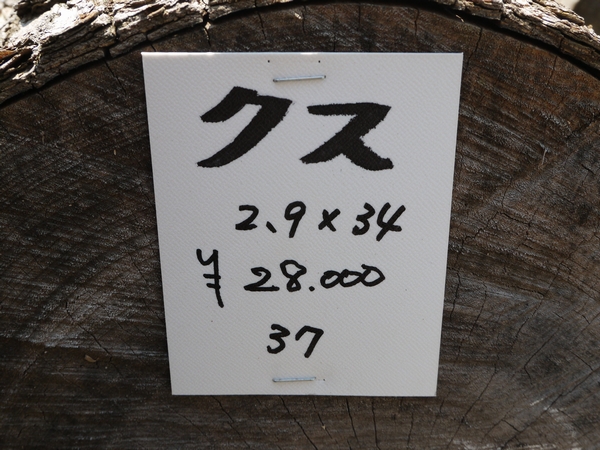 クス
2.9×34
¥28.000
37